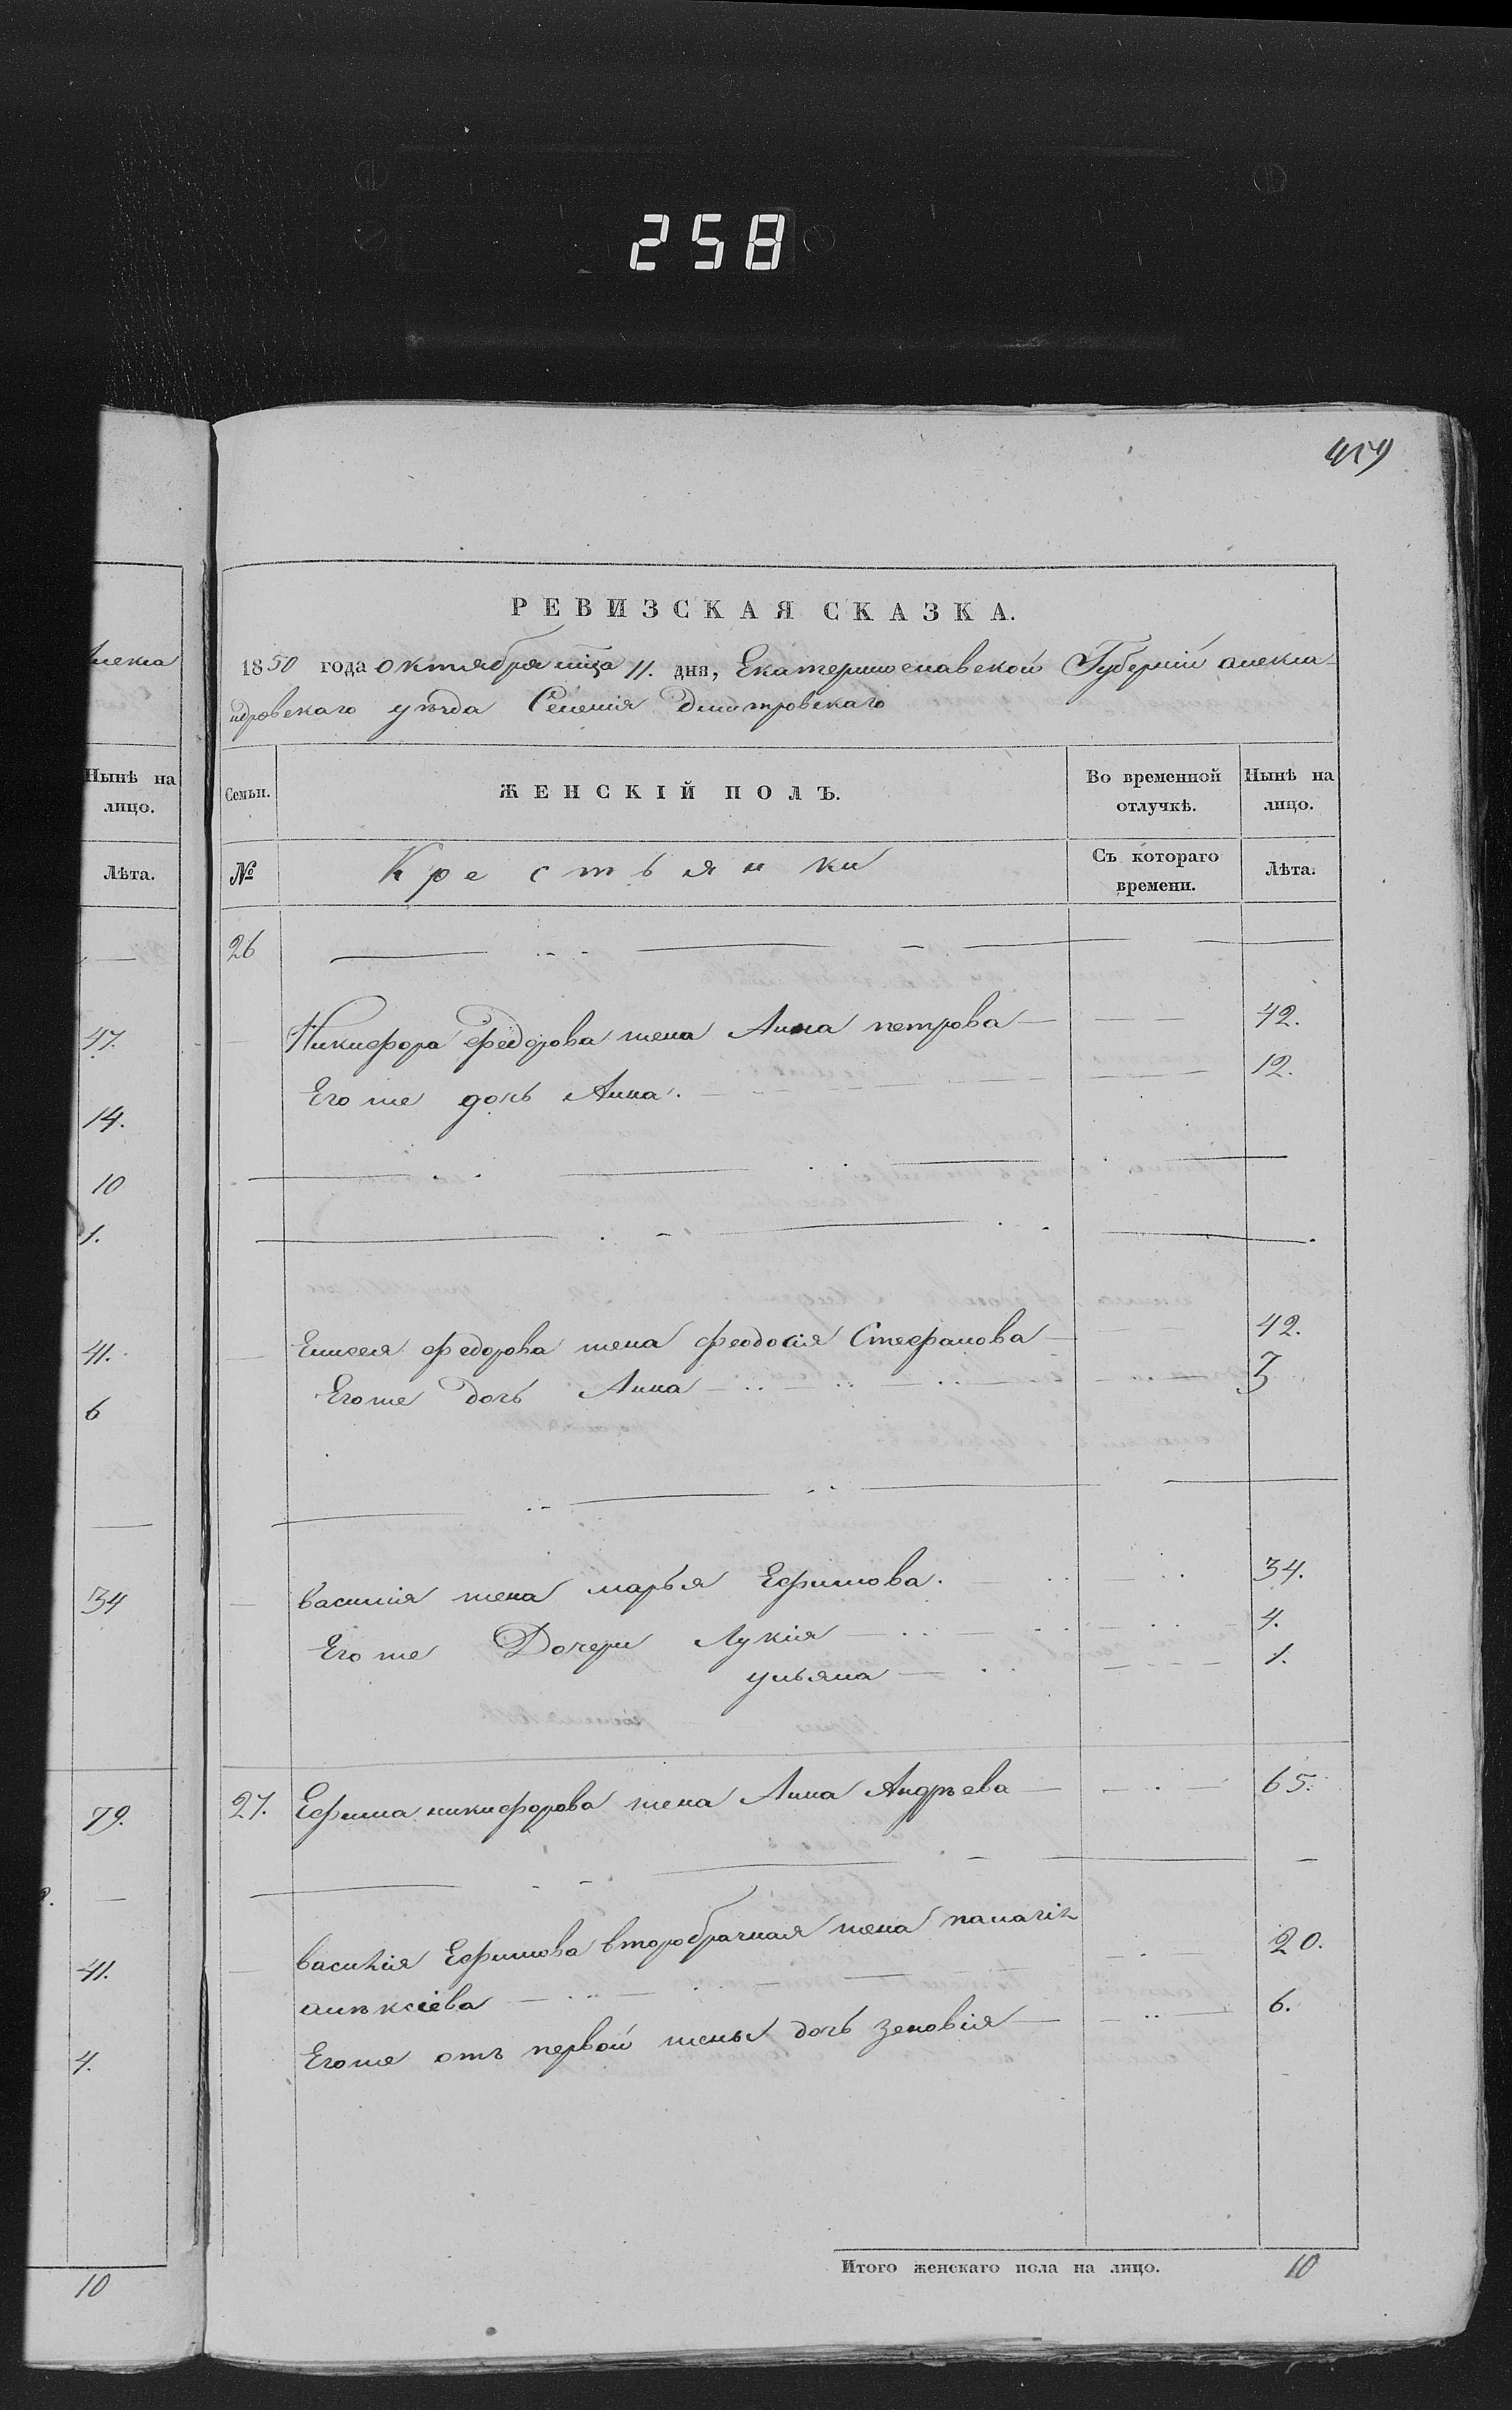 258
459
РЕВИЗСКАЯ СКАЗКА.
1850 года октября мца 11. дня, Екатеринославской Губерніи алекса-
ндровскаго уѣзда Селенія Дмитровскаго
лекса
Нынѣ на
лицо.
Лѣта.
47.
14.
10
1.
41.
6
34
79.
41.
4.
10
Семьи.
ЖЕНСКІЙ ПОЛЪ.
Во временной
отлучкѣ.
Нынѣ на
лицо.
№
Крестьянки
Съ котораго
времени.
Лѣта.
26
Никифора федорова жена Анна петрова 42.
Его же дочь Анна. 12.
Елисея федорова жена феодосія Стефанова 42.
Его же дочь Анна 3
василія жена марья Ефимова. 34.
Его же Дочери Лукія 4.
ульяна 1.
27. Ефима никифорова жена Анна Андрѣева 65.
василія Ефимова второбрачная жена палагія
алѣксіева 20.
Его же отъ первой жены дочь зеновія 6.
Итого женскаго пола на лицо. 10